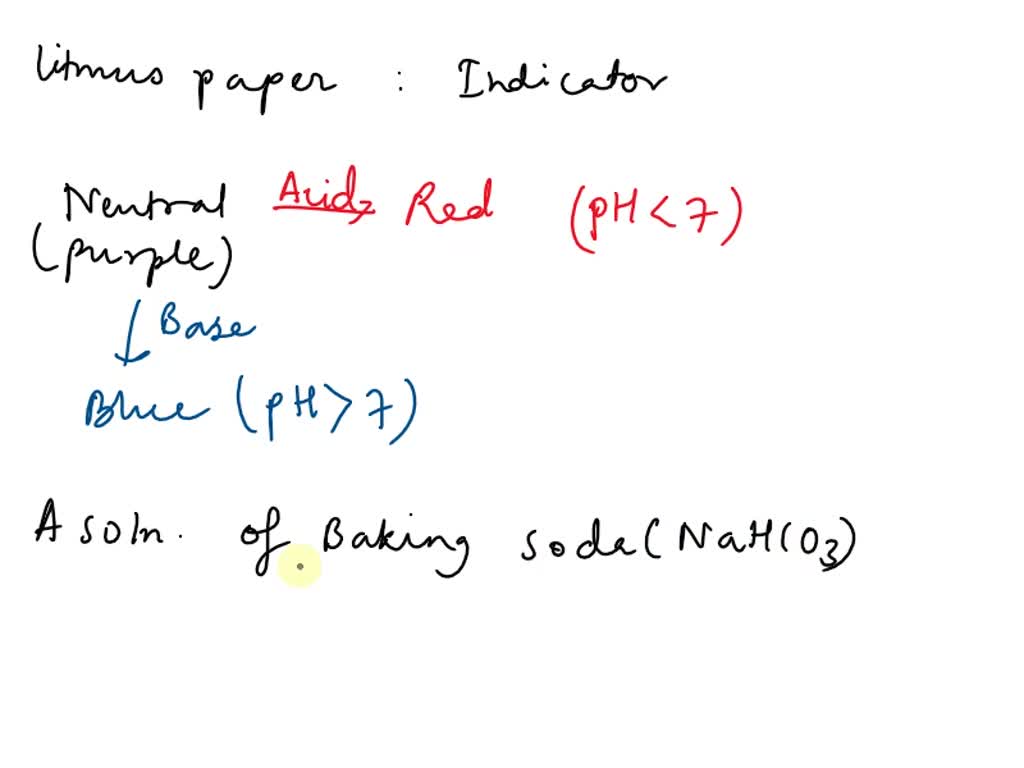 Litmus paper : Indicator
Neutral Acid Red (pH < 7)
(purple)
Base
Blue (pH > 7)
A soln. of Baking soda (NaHCO3)